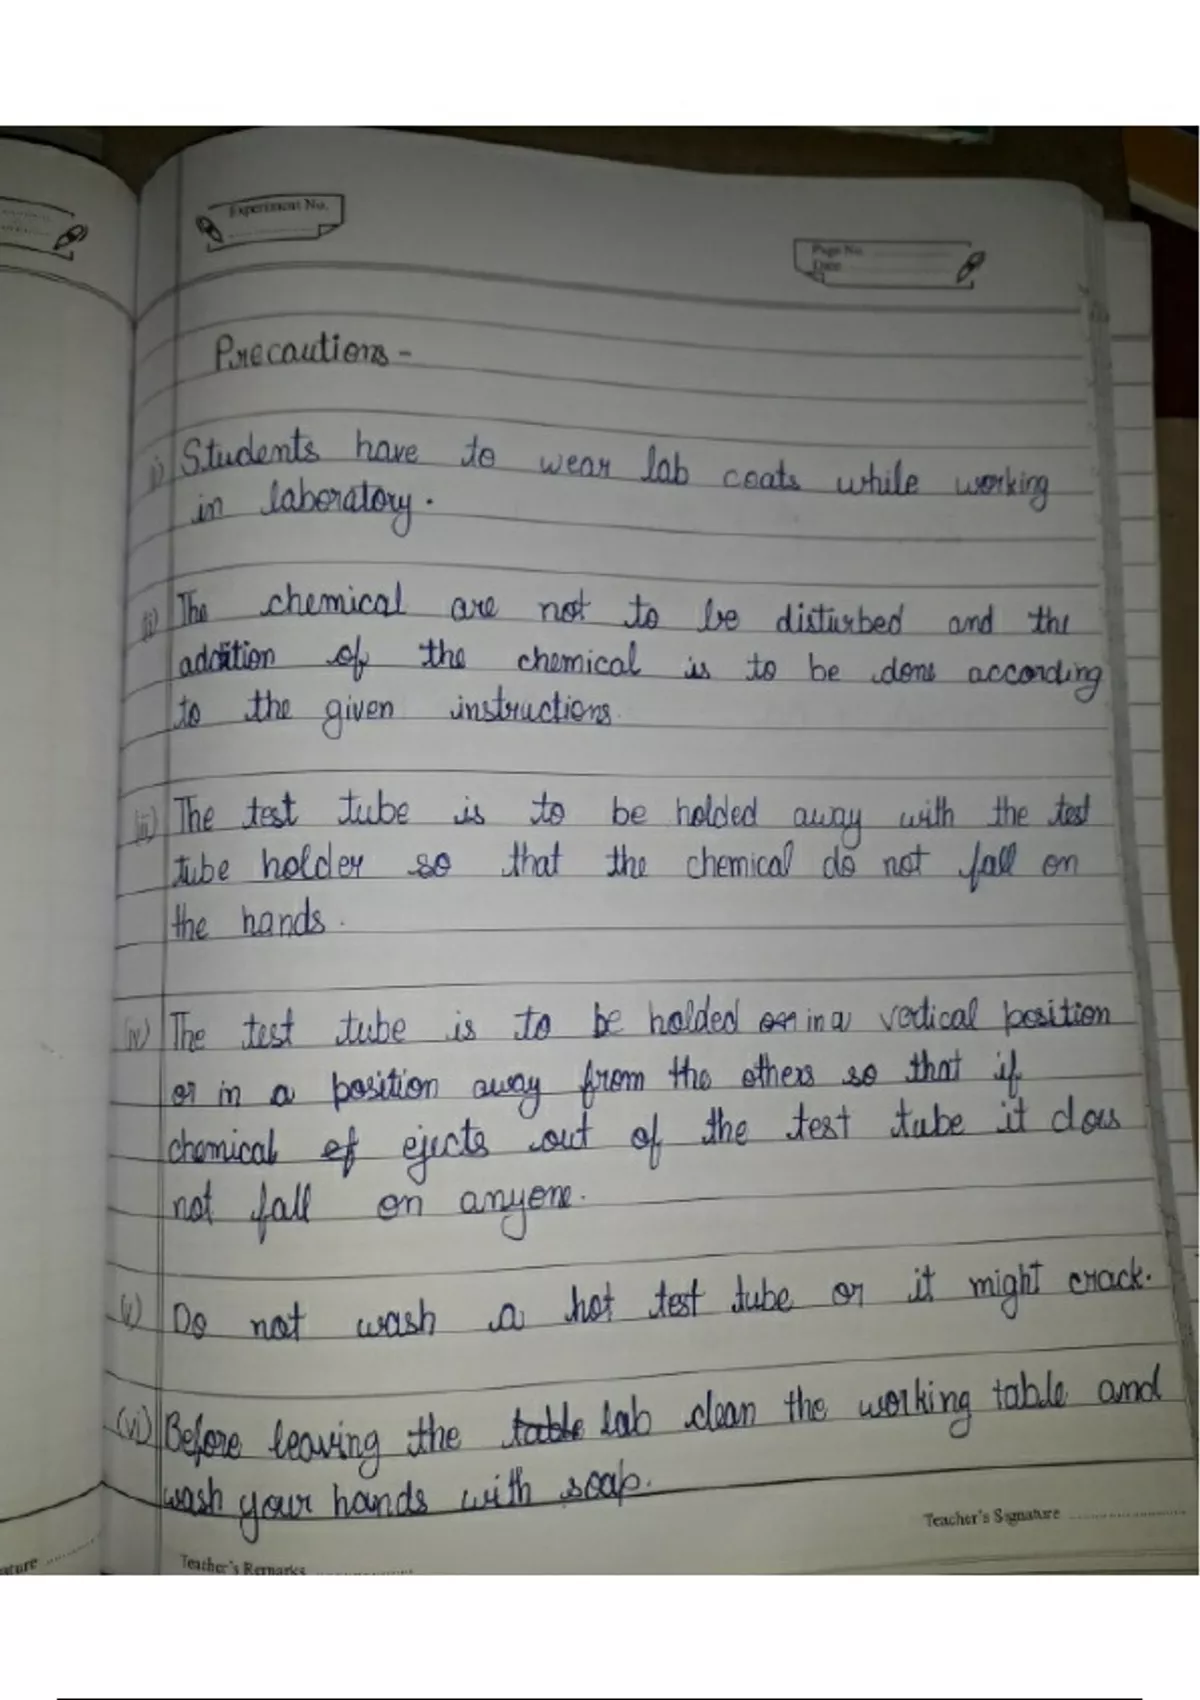 Experiment No.
Page No.
Date
Precautions -
i) Students have to wear lab coats while working
in laboratory.
ii) The chemical are not to be disturbed and the
addition of the chemical is to be done according
to the given instructions.
iii) The test tube is to be holded away with the test
tube holder so that the chemical do not fall on
the hands.
iv) The test tube is to be holded on in a vertical position
or in a position away from the others so that if
chemical ef ejects out of the test tube it does
not fall on anyone.
v) Do not wash a hot test tube or it might crack.
(vi) Before leaving the table lab clean the working table and
wash your hands with soap.
Teacher's Signature
Teacher's Remarks